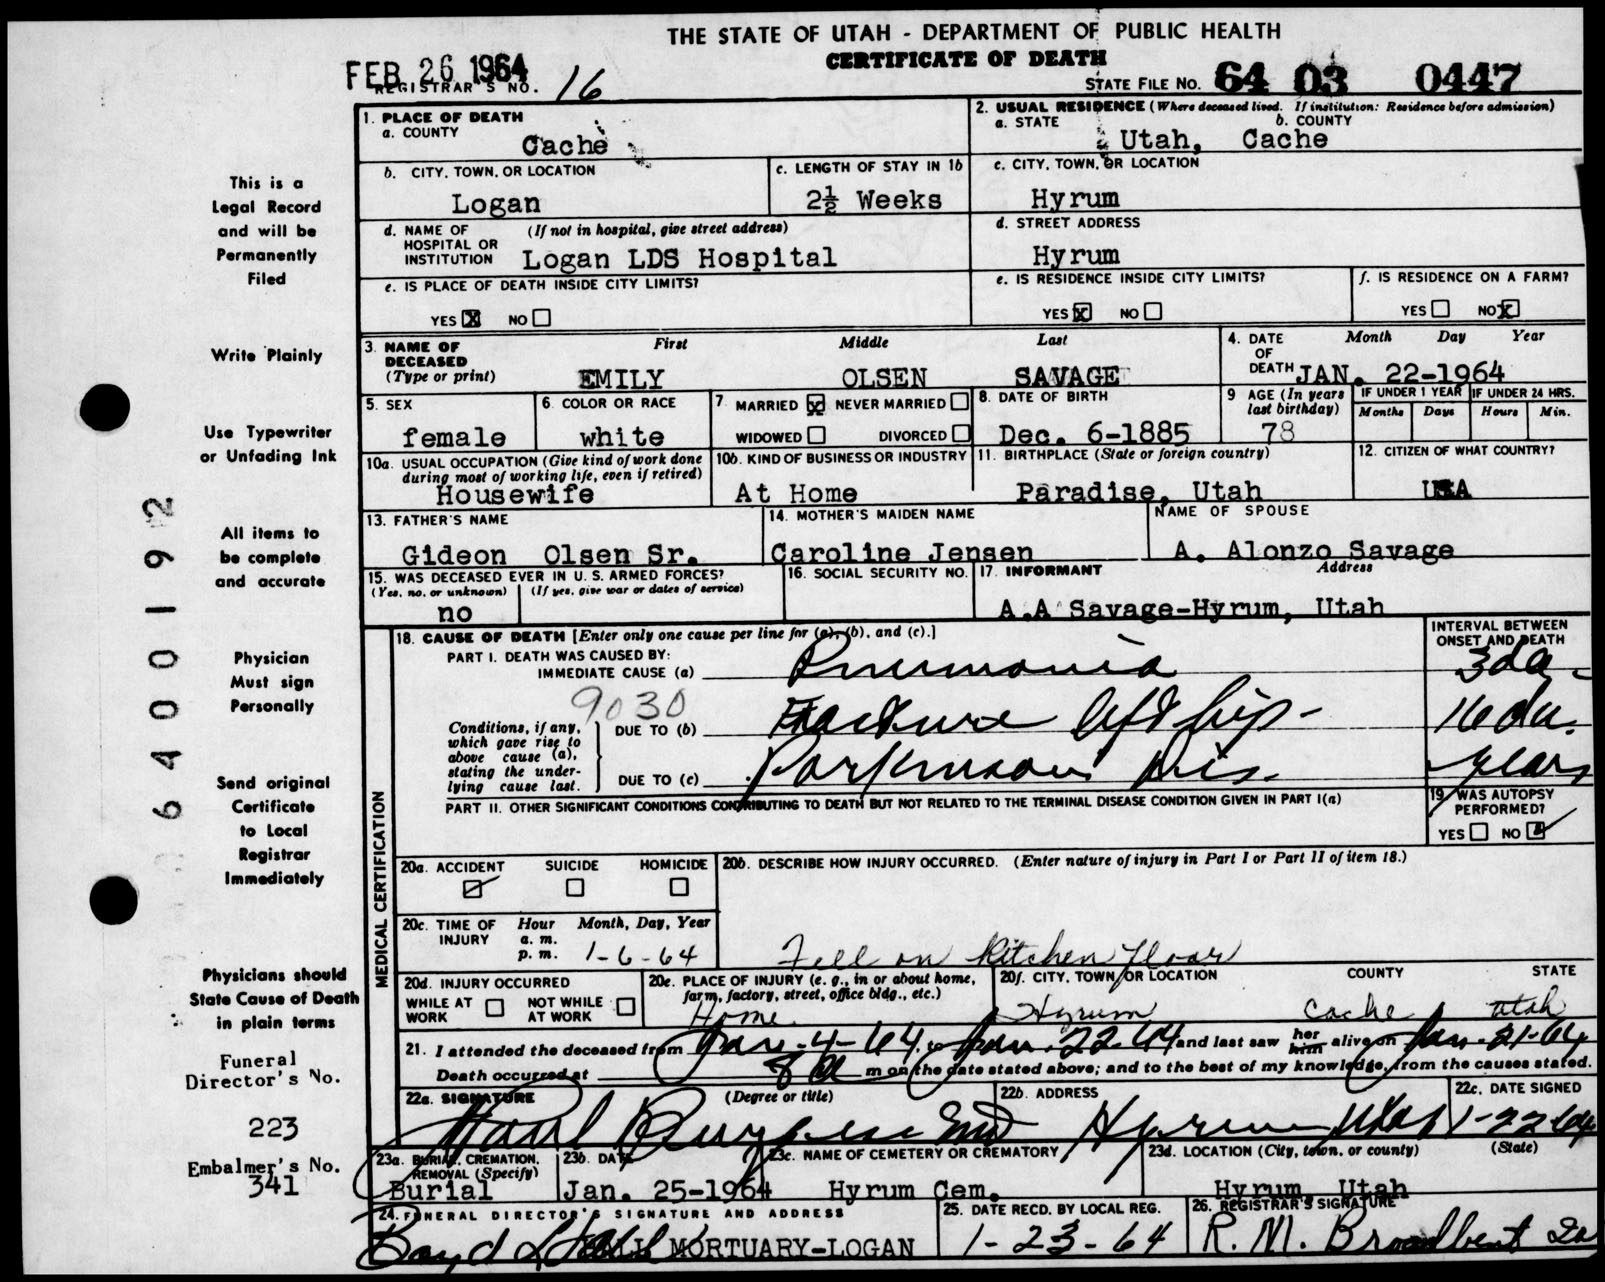 THE STATE OF UTAH - DEPARTMENT OF PUBLIC HEALTH
CERTIFICATE OF DEATH
FEB 26 1964
REGISTRAR'S NO. 16
STATE FILE NO. 64 03 0447
This is a
Legal Record
and will be
Permanently
Filed
Write Plainly
Use Typewriter
or Unfading Ink
All items to
be complete
and accurate
Physician
Must sign
Personally
Send original
Certificate
to Local
Registrar
Immediately
Physicians should
State Cause of Death
in plain terms
Funeral
Director's No.
223
Embalmer's No.
341
6400192
1. PLACE OF DEATH
a. COUNTY
Cache
2. USUAL RESIDENCE (Where deceased lived. If institution: Residence before admission)
a. STATE b. COUNTY
Utah, Cache
b. CITY, TOWN, OR LOCATION
Logan
c. LENGTH OF STAY IN 1b
2½ Weeks
c. CITY, TOWN, OR LOCATION
Hyrum
d. NAME OF (If not in hospital, give street address)
HOSPITAL OR
INSTITUTION Logan LDS Hospital
d. STREET ADDRESS
Hyrum
e. IS PLACE OF DEATH INSIDE CITY LIMITS?
YES X NO
e. IS RESIDENCE INSIDE CITY LIMITS?
YES X NO
f. IS RESIDENCE ON A FARM?
YES NO X
3. NAME OF First Middle Last
DECEASED
(Type or print) EMILY OLSEN SAVAGE
4. DATE Month Day Year
OF
DEATH JAN. 22-1964
5. SEX
female
6. COLOR OR RACE
white
7 MARRIED X NEVER MARRIED
WIDOWED DIVORCED
8. DATE OF BIRTH
Dec. 6-1885
9 AGE (In years
last birthday)
78
IF UNDER 1 YEAR IF UNDER 24 HRS.
Months Days Hours Min.
10a. USUAL OCCUPATION (Give kind of work done
during most of working life, even if retired)
Housewife
10b. KIND OF BUSINESS OR INDUSTRY
At Home
11. BIRTHPLACE (State or foreign country)
Paradise, Utah
12. CITIZEN OF WHAT COUNTRY?
USA
13. FATHER'S NAME
Gideon Olsen Sr.
14. MOTHER'S MAIDEN NAME
Caroline Jensen
NAME OF SPOUSE
A. Alonzo Savage
15. WAS DECEASED EVER IN U. S. ARMED FORCES?
(Yes, no, or unknown) (If yes, give war or dates of service)
no
16. SOCIAL SECURITY NO.
17. INFORMANT Address
A.A Savage-Hyrum, Utah
MEDICAL CERTIFICATION
18. CAUSE OF DEATH [Enter only one cause per line for (a), (b), and (c).]
INTERVAL BETWEEN
ONSET AND DEATH
PART I. DEATH WAS CAUSED BY:
IMMEDIATE CAUSE (a) Pneumonia 3 da-
9030
Conditions, if any,
which gave rise to
above cause (a),
stating the under-
lying cause last.
DUE TO (b) Fracture left hip- 16 da.
DUE TO (c) Parkinson Dis. years
PART II. OTHER SIGNIFICANT CONDITIONS CONTRIBUTING TO DEATH BUT NOT RELATED TO THE TERMINAL DISEASE CONDITION GIVEN IN PART I(a)
19. WAS AUTOPSY
PERFORMED?
YES NO
20a. ACCIDENT SUICIDE HOMICIDE
20b. DESCRIBE HOW INJURY OCCURRED. (Enter nature of injury in Part I or Part II of item 18.)
Fell on kitchen floor
20c. TIME OF Hour Month, Day, Year
INJURY a. m.
p. m. 1-6-64
20d. INJURY OCCURRED
WHILE AT NOT WHILE
WORK AT WORK
20e. PLACE OF INJURY (e. g., in or about home,
farm, factory, street, office bldg., etc.)
Home
20f. CITY, TOWN, OR LOCATION COUNTY STATE
Hyrum Cache Utah
21. I attended the deceased from Jan-4-64, to Jan. 22-64 and last saw her him alive on Jan-21-64
Death occurred at 8 a m on the date stated above; and to the best of my knowledge, from the causes stated.
22a. SIGNATURE (Degree or title)
Burgess MD
22b. ADDRESS
Hyrum Utah
22c. DATE SIGNED
1-22-64
23a. BURIAL, CREMATION,
REMOVAL (Specify)
Burial
23b. DATE
Jan. 25-1964
23c. NAME OF CEMETERY OR CREMATORY
Hyrum Cem.
23d. LOCATION (City, town, or county) (State)
Hyrum, Utah
24. FUNERAL DIRECTOR'S SIGNATURE AND ADDRESS
Boyd L Hall HALL MORTUARY-LOGAN
25. DATE RECD. BY LOCAL REG.
1-23-64
26. REGISTRAR'S SIGNATURE
R. M. Broadbent